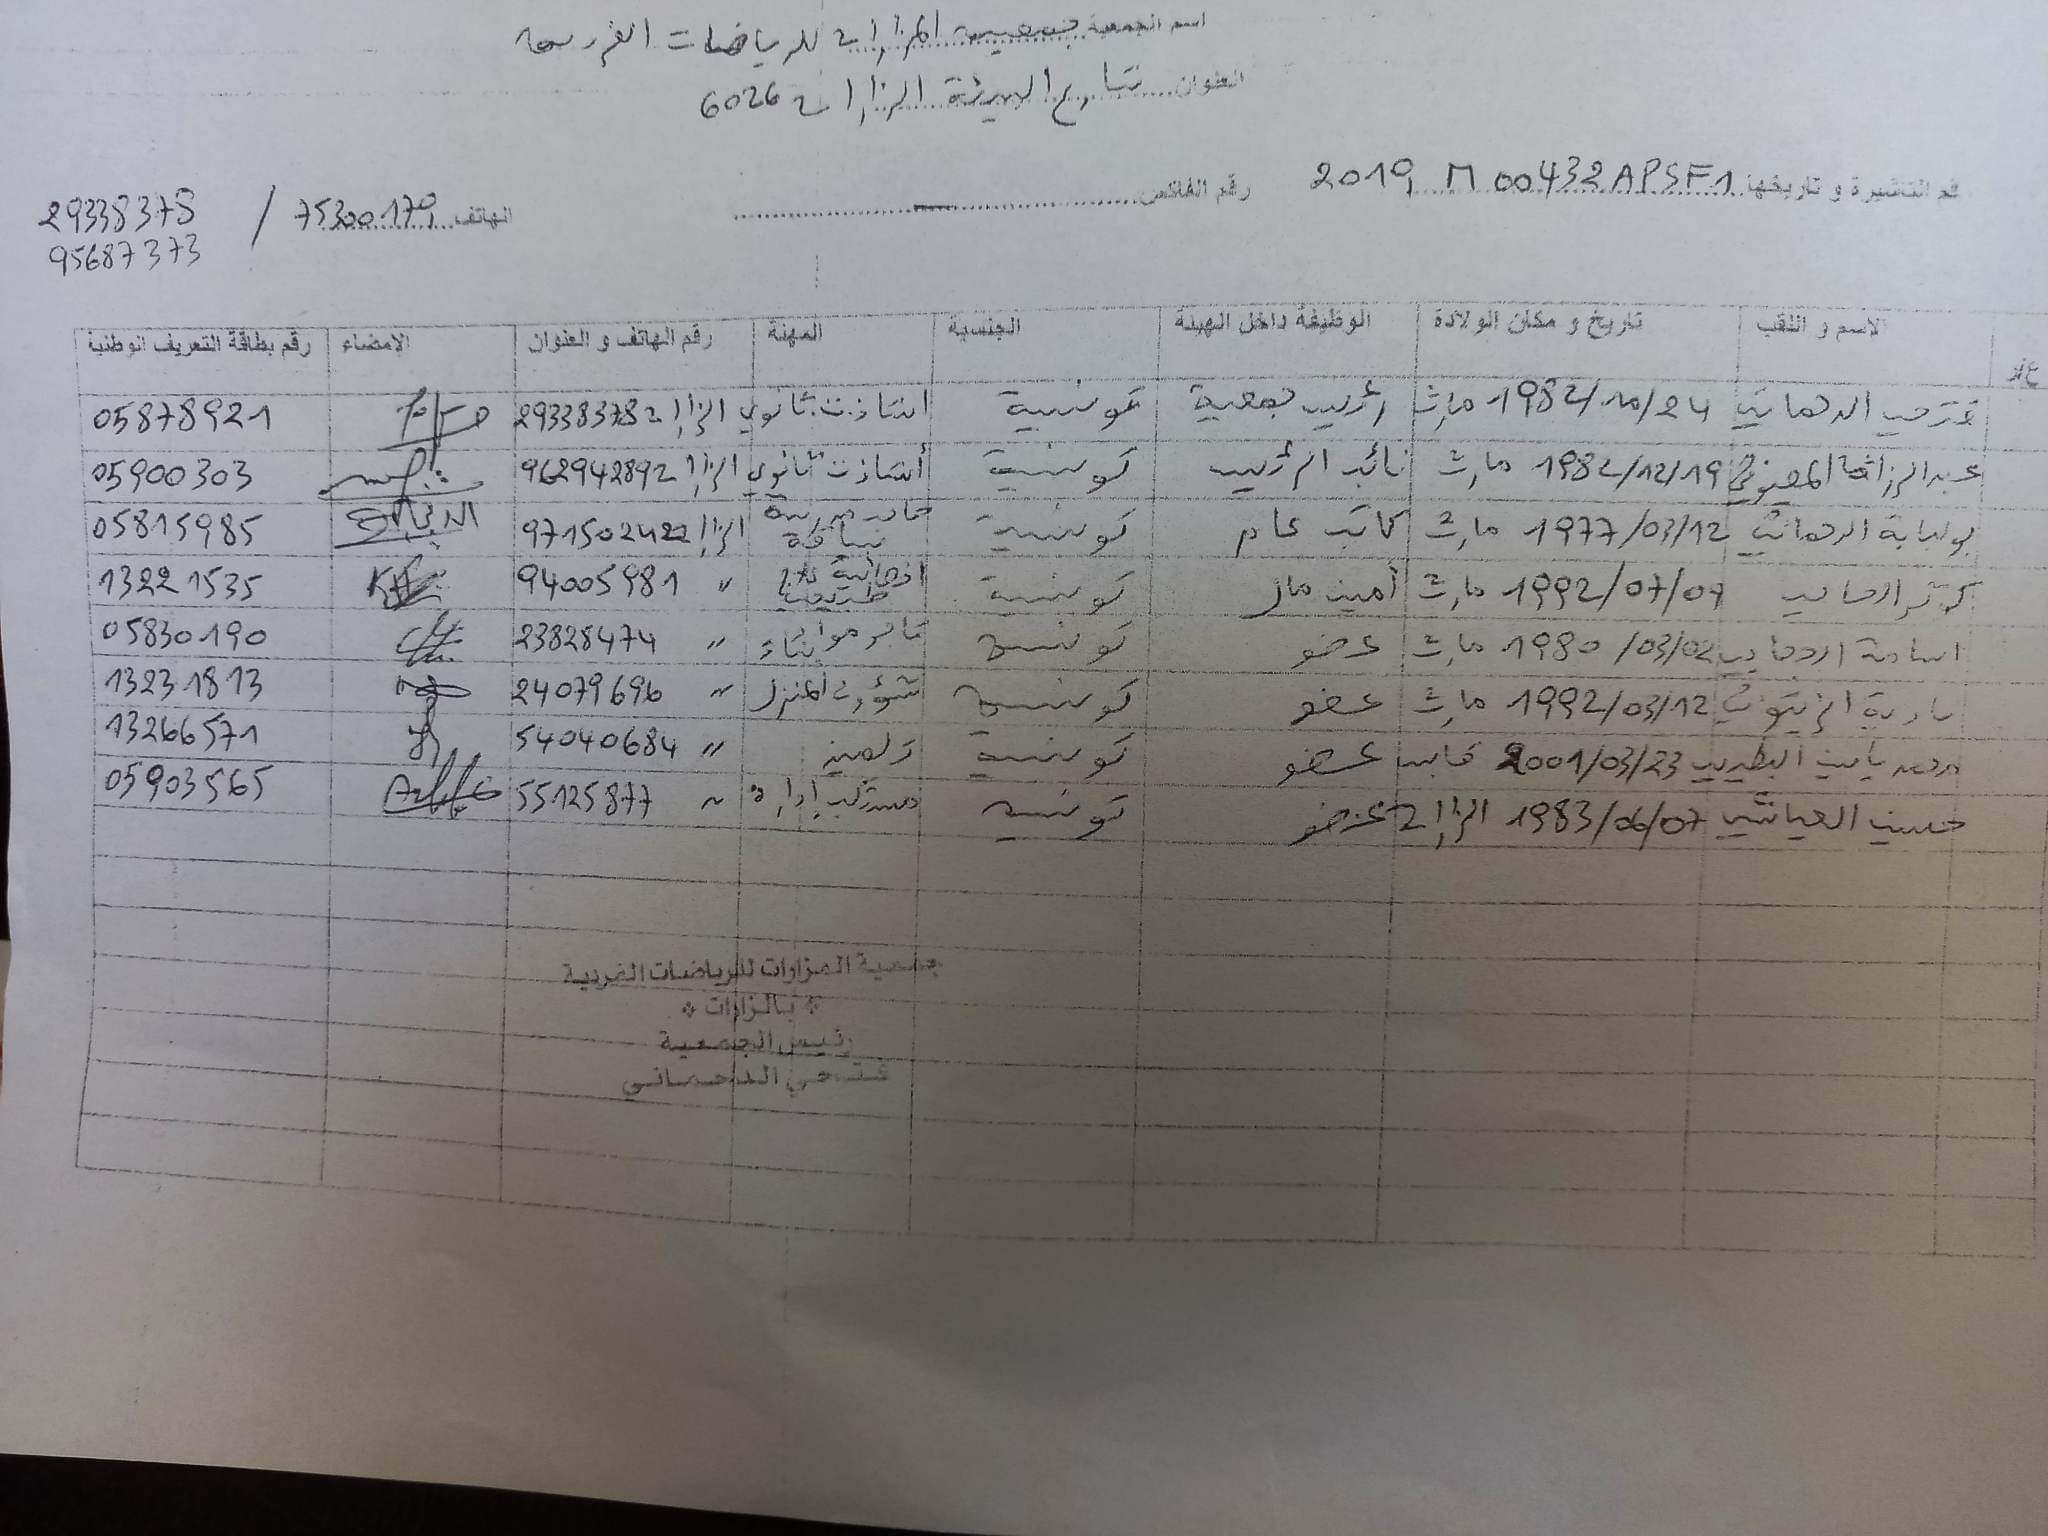 اسم الجمعية جمعية المزارات للرياضات الفردية
العنوان شارع البيئة الزارات 6026
قم التأشيرة و تاريخها 2019 M 00432 APSF1 رقم الفاكس الهاتف 75300179 / 29338378
95687373
ع/ر الاسم و اللقب تاريخ و مكان الولادة الوظيفة داخل الهيئة الجنسية المهنة رقم الهاتف و العنوان الامضاء رقم بطاقة التعريف الوطنية
فتحي الدحماني 1982/10/24 مارث رئيس جمعية تونسية استاذ ثانوي الزارات 29338378 05878921
عبد الرزاق 1982/12/19 مارث نائب الرئيس تونسية أستاذ ثانوي 05900303
بولبابة الدحماني 1977/03/12 مارث كاتب عام تونسية 05815985
كوثر 1992/07/09 مارث أمين مال تونسية " 94005981 13221535
اسامة 1980/03/02 مارث عضو تونسية تاجر مواد بناء " 23828474 05830190
الزيتوني 1992/03/12 مارث عضو تونسية شؤون المنزل " 24079696 13231813
محمد ياسين 2001/03/23 قابس عضو تونسية تلميذ " 54040684 13266571
حسين العياشي 1983/06/07 الزارات عضو تونسية " 55125877 05903565
جمعية المزارات للرياضات الفردية
* بالزارات *
رئيس الجمعية
فتحي الدحماني